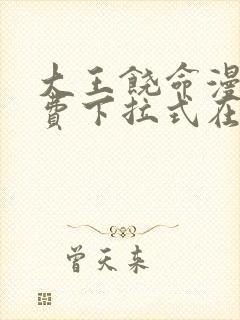 大王饶命漫
费下拉式在
曾天来